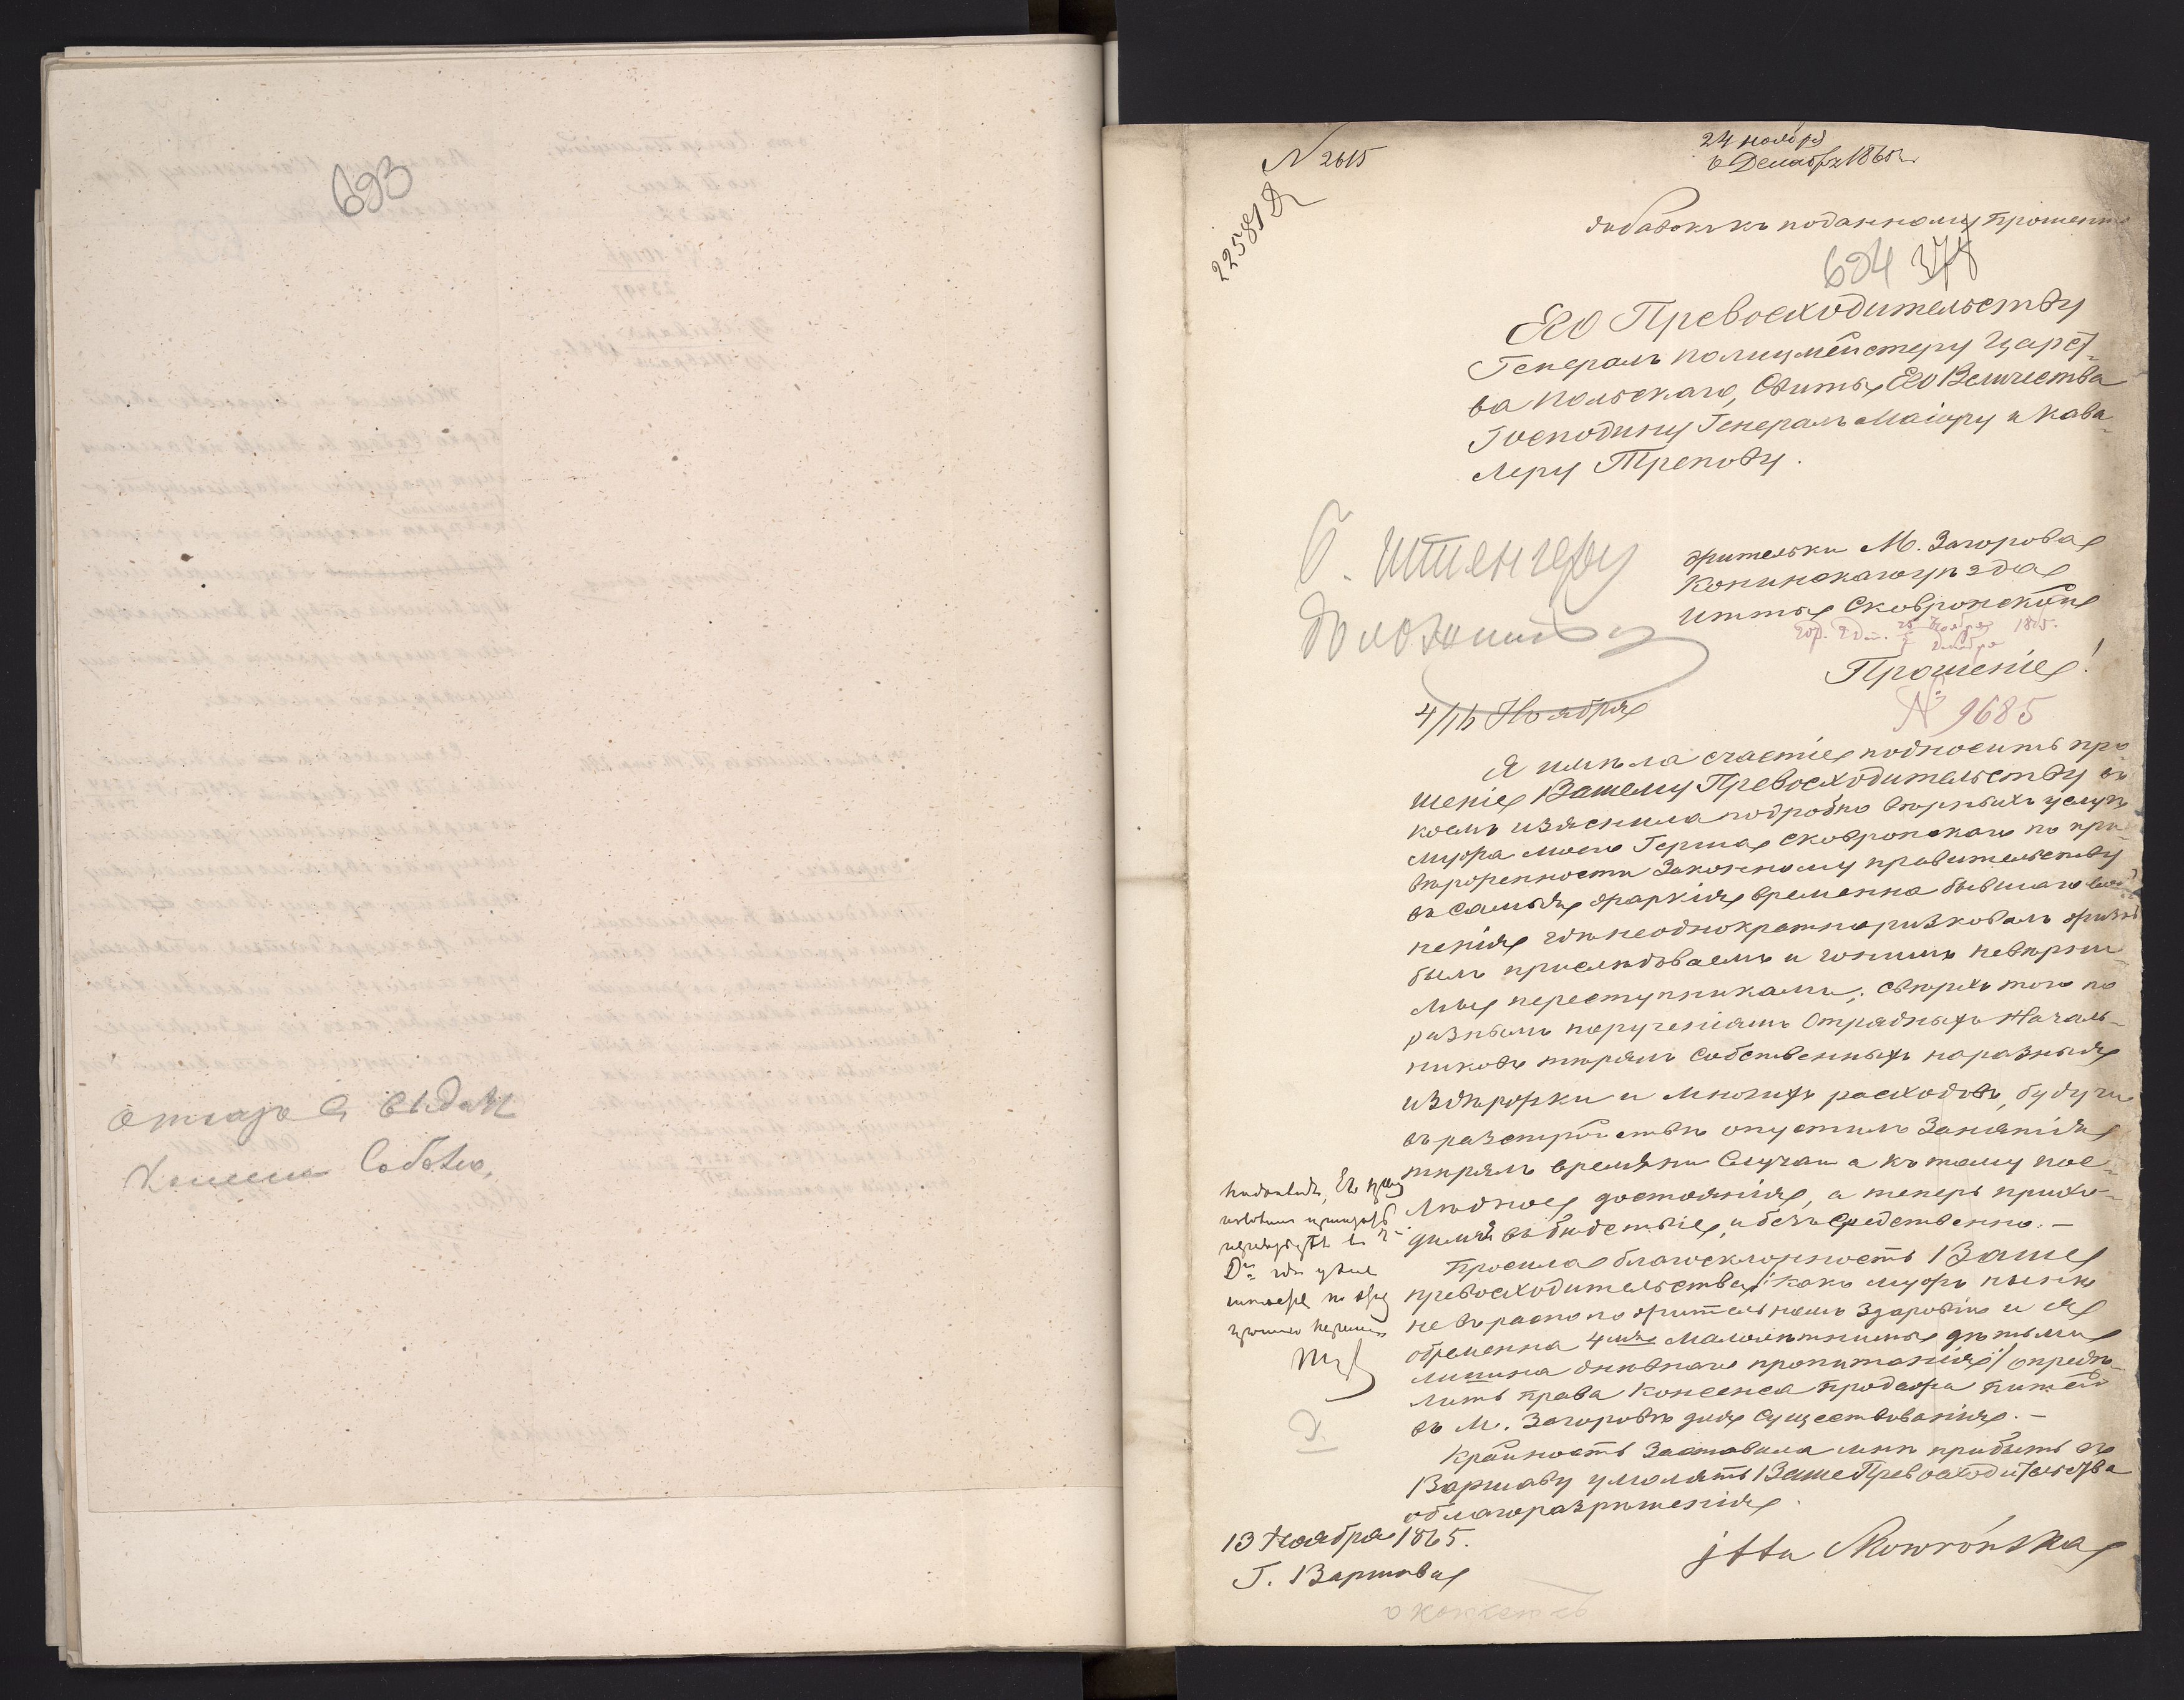 693
отказъ в выдачѣ
N 2615
22581
24 ноября
6 Декабря 1865 г.
добавокъ къ поданному Прошенію
694 378
Его Превосходительству
Генералъ полицмейстеру Царст-
ва Польскаго, Свиты Его Величества
Господину Генералъ Маіору и Кава-
леру Трепову.
Б. Штенгеру
Доложить
жительки М. Загорова
Конинскаго уѣзда
Итты Сковронской
25 Ноября 1865.
7 Декабря
Прошеніе!
№ 9685
4/16 Ноября
Я имѣла счастіе подносить про
шеніе Вашему Превосходительству въ
коемъ изяснила подробно вѣрныхъ услугъ
мужа моего Герша Сковронскаго по при-
вѣрженности Законному правительству
въ самыя жаркія временна бывшаго воз
ненія гдѣ неоднократно ризковалъ жизнь
былъ прислѣдываемъ и гонимъ невѣрны-
мы переступниками; свѣрхъ того по
разнымъ порученіямъ Отрядныхъ Началь-
никовъ тѣрялъ собственныхъ на разныя
издѣржки и многихъ расходовъ, будучи
въ разстройствѣ опустилъ Занятія
тѣрялъ времяни Случаи а къ тому пос-
лѣднюе достоянія, а теперь прихо-
димъ въ бѣдствіе, и безъ средственно.—
Просила благосклонность Ваше
превосходительства /: какъ мужъ нынѣ
на вѣрасно по жительномъ здоровіи и я
обременна 4мя малолѣтнимы дѣтьми
лишна дневнаго пропитанія :/ опредѣ-
лить права Консенса продажи питей
въ М. Загоровѣ для существованія.—
Крайность Заставила мнѣ прибыть въ
Варшаву умолять Ваше Превосходительства
о благоразрѣшенія.
13 Ноября 1865.
Г. Варшава
jtta Skowrońska
о консенсѣ